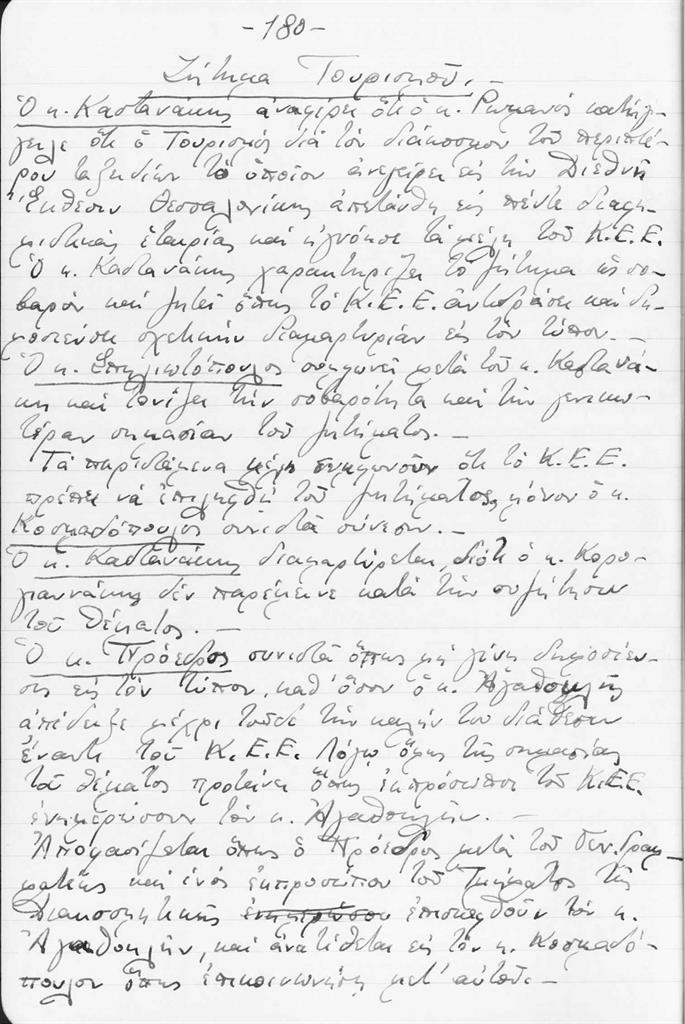 -180-
Ζήτημα Τουρισμοῦ.-
Ὁ κ. Καστανάκης ἀναφέρει ὅτι ὁ κ. Ρωμανός κατήγ-
γειλε ὅτι ὁ Τουρισμός διά τόν διάκοσμον τοῦ περιπτέ-
ρου ταξειδίων τό ὁποῖον ἀνεγείρει εἰς τήν Διεθνῆ
Ἔκθεσιν Θεσσαλονίκης ἀπετάνθη εἰς πέντε διαφη-
μιστικάς ἑταιρίας καί ἠγνόησε τά μέλη τοῦ Κ.Ε.Ε.
Ὁ κ. Καστανάκης χαρακτηρίζει τό ζήτημα ὡς σο-
βαρόν καί ζητεῖ ὅπως τό Κ.Ε.Ε. ἀντιδράση καί δη-
μοσιεύση σχετικήν διαμαρτυρίαν εἰς τόν τύπον.-
Ὁ κ. Σπηλιωτόπουλος συμφωνεῖ μετά τοῦ κ. Καστανά-
κη καί τονίζει τήν σοβαρότητα καί τήν γενικω-
τέραν σημασίαν τοῦ ζητήματος.-
Τά παριστάμενα μέλη συμφωνοῦν ὅτι τό Κ.Ε.Ε.
πρέπει νά ἐπιληφθῇ τοῦ ζητήματος, μόνον ὁ κ.
Κοσμαδόπουλος συνιστᾶ σύνεσιν.-
Ὁ κ. Καστανάκης διαμαρτύρεται, διότι ὁ κ. Κορο-
γιαννάκης δέν παρέμεινε κατά τήν συζήτησιν
τοῦ θέματος.-
Ὁ κ. Πρόεδρος συνιστᾶ ὅπως μή γίνῃ δημοσίευ-
σις εἰς τόν τύπον, καθ' ὅσον ὁ κ. Ἀγαθοκλῆς
ἀπέδειξε μέχρι τοῦδε τήν καλήν του διάθεσιν
ἔναντι τοῦ Κ.Ε.Ε. Λόγῳ ὅμως τῆς σημασίας
τοῦ θέματος προτείνει ὅπως ἐκπρόσωποι τοῦ Κ.Ε.Ε.
ἐνημερώσουν τόν κ. Ἀγαθοκλῆν.-
Ἀποφασίζεται ὅπως ὁ Πρόεδρος μετά τοῦ Γεν. Γραμ-
ματέως καί ἑνός ἐκπροσώπου τοῦ Τμήματος τῆς
Διακοσμητικῆς ἐνημερώσου ἐπισκεφθοῦν τόν κ.
Ἀγαθοκλῆν, καί ἀνατίθεται εἰς τόν κ. Κοσμαδό-
πουλον ὅπως ἐπικοινωνήσῃ μετ' αὐτοῦ.-